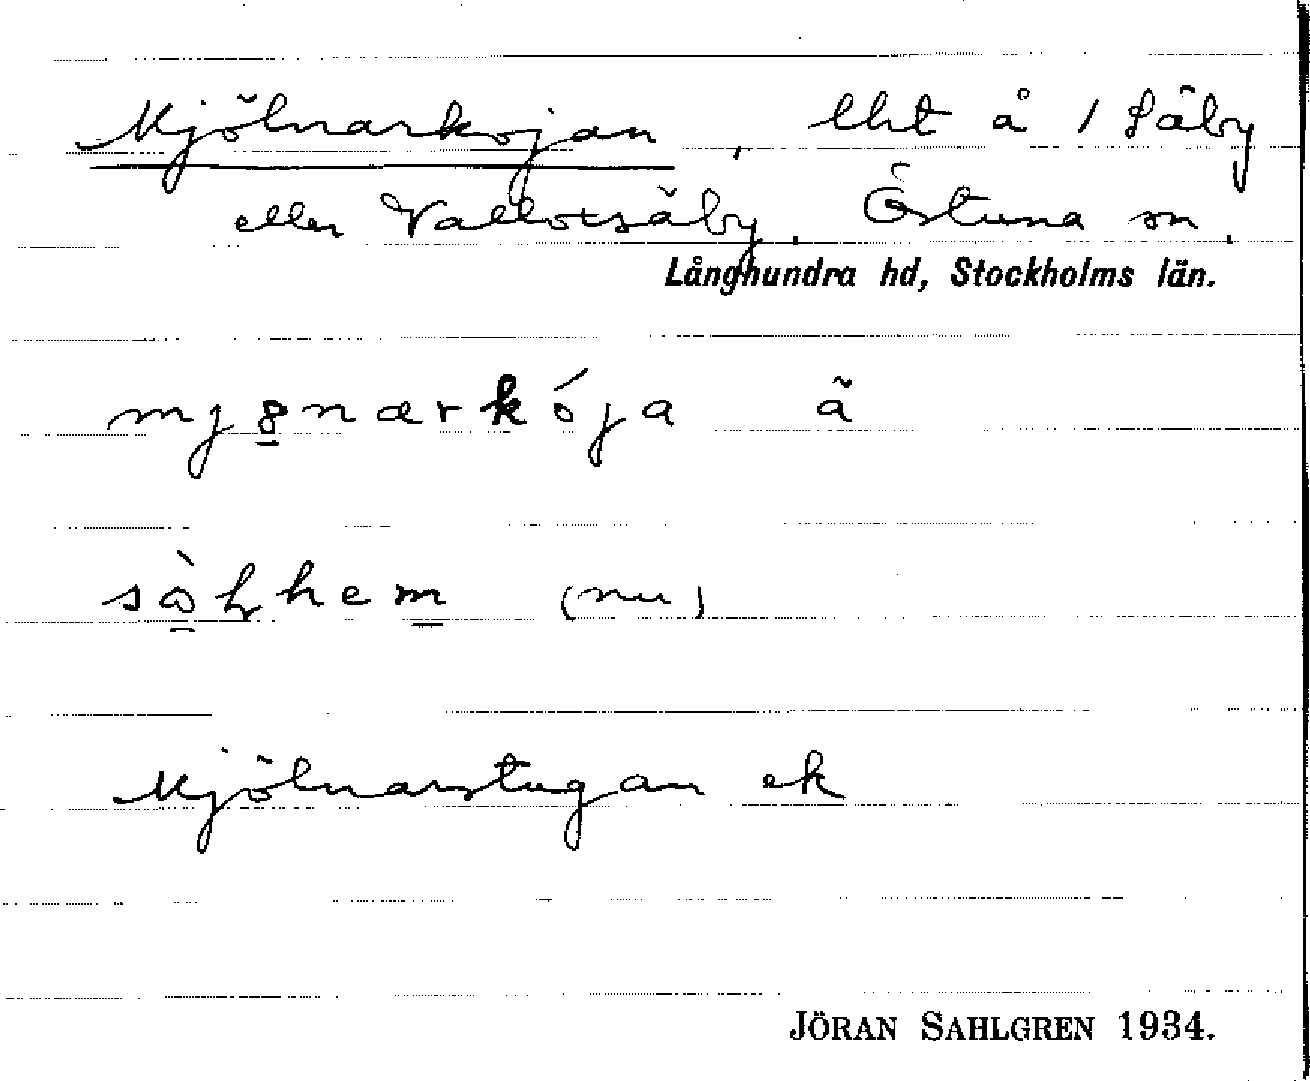 Mjölnarkojan, lht å 1 Säby
eller Vallbysäby. Östuna sn.
Långhundra hd, Stockholms län.
mj8nærkója ã
(nu)
Mjölnarstugan ek
JÖRAN SAHLGREN 1934.